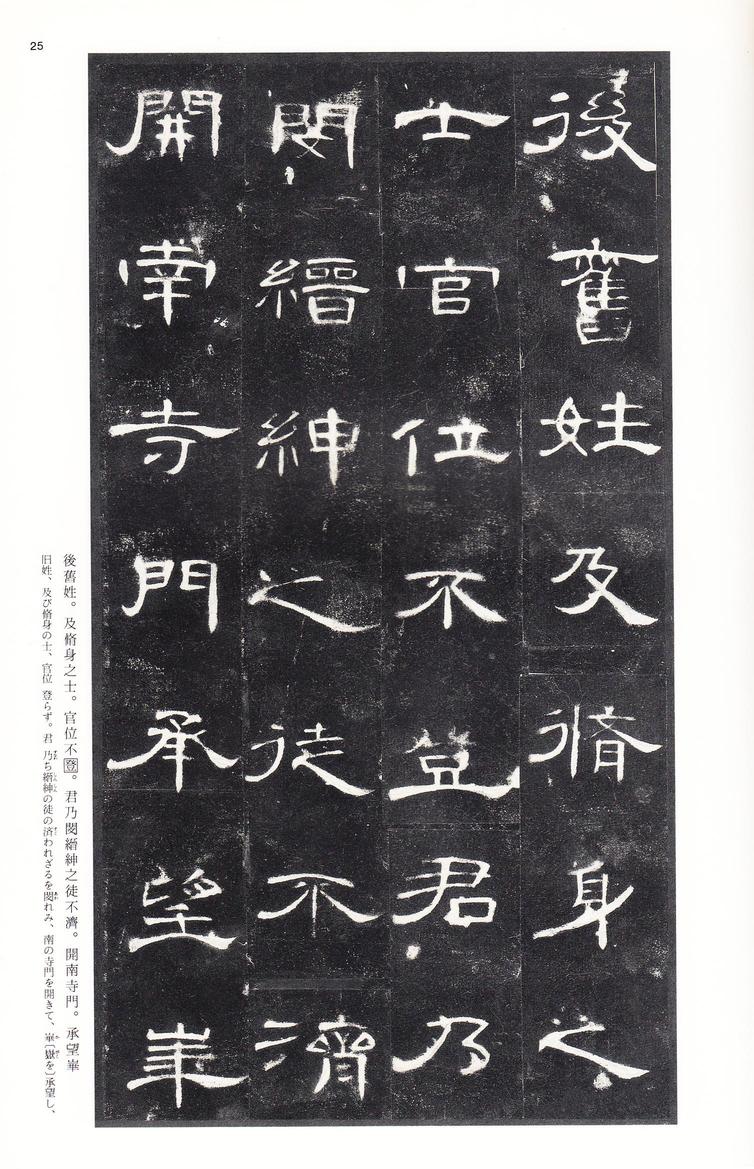 25
後舊姓及脩身之
士官位不登君乃
閔縉紳之徒不濟
開南寺門承望崋
後舊姓。及脩身之士。官位不登。君乃閔縉紳之徒不濟。開南寺門。承望崋
旧姓、及び脩身の士、官位 登らず。君 乃ち縉紳の徒の済われざるを閔れみ、南の寺門を開きて、崋〔嶽を〕承望し、